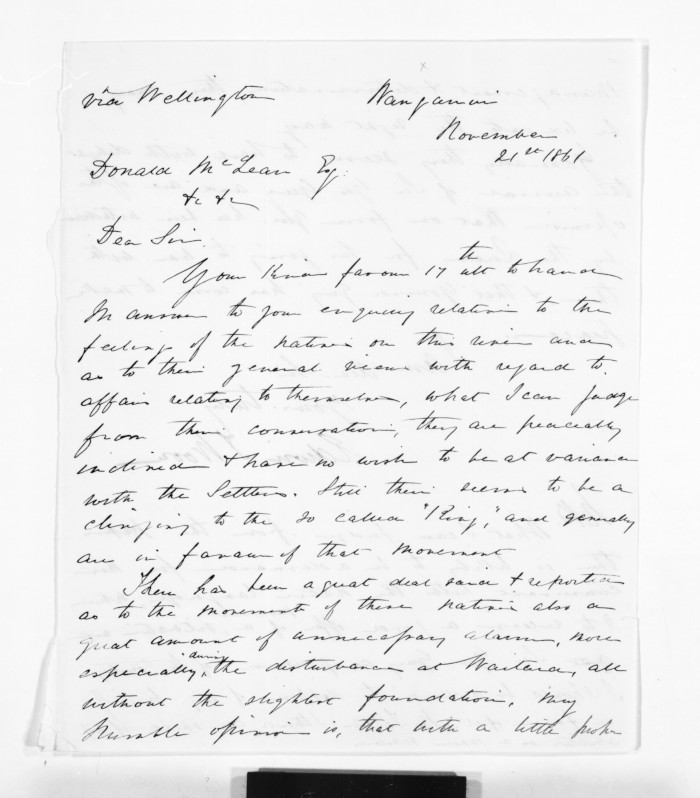 via Wellington Wanganui
November
21st 1861
Donald McLean Esq.
&c &c
Dear Sir
Your kind favour 17th ult to hand
In answer to your enquiry relative to the
feelings of the natives on this river and
as to their general views with regard to
affairs relating to themselves, what I can judge
from their conversation, they are peaceably
inclined & have no wish to be at variance
with the Settlers. Still there seems to be a
clinging to the so called "King", and generally
are in favour of that movement
There has been a great deal said & reported
as to the movement of these natives also a
great amount of unnecessary alarm, more
especially during the disturbance at Waitara, all
without the slightest foundation, my
humble opinion is, that with a little proper